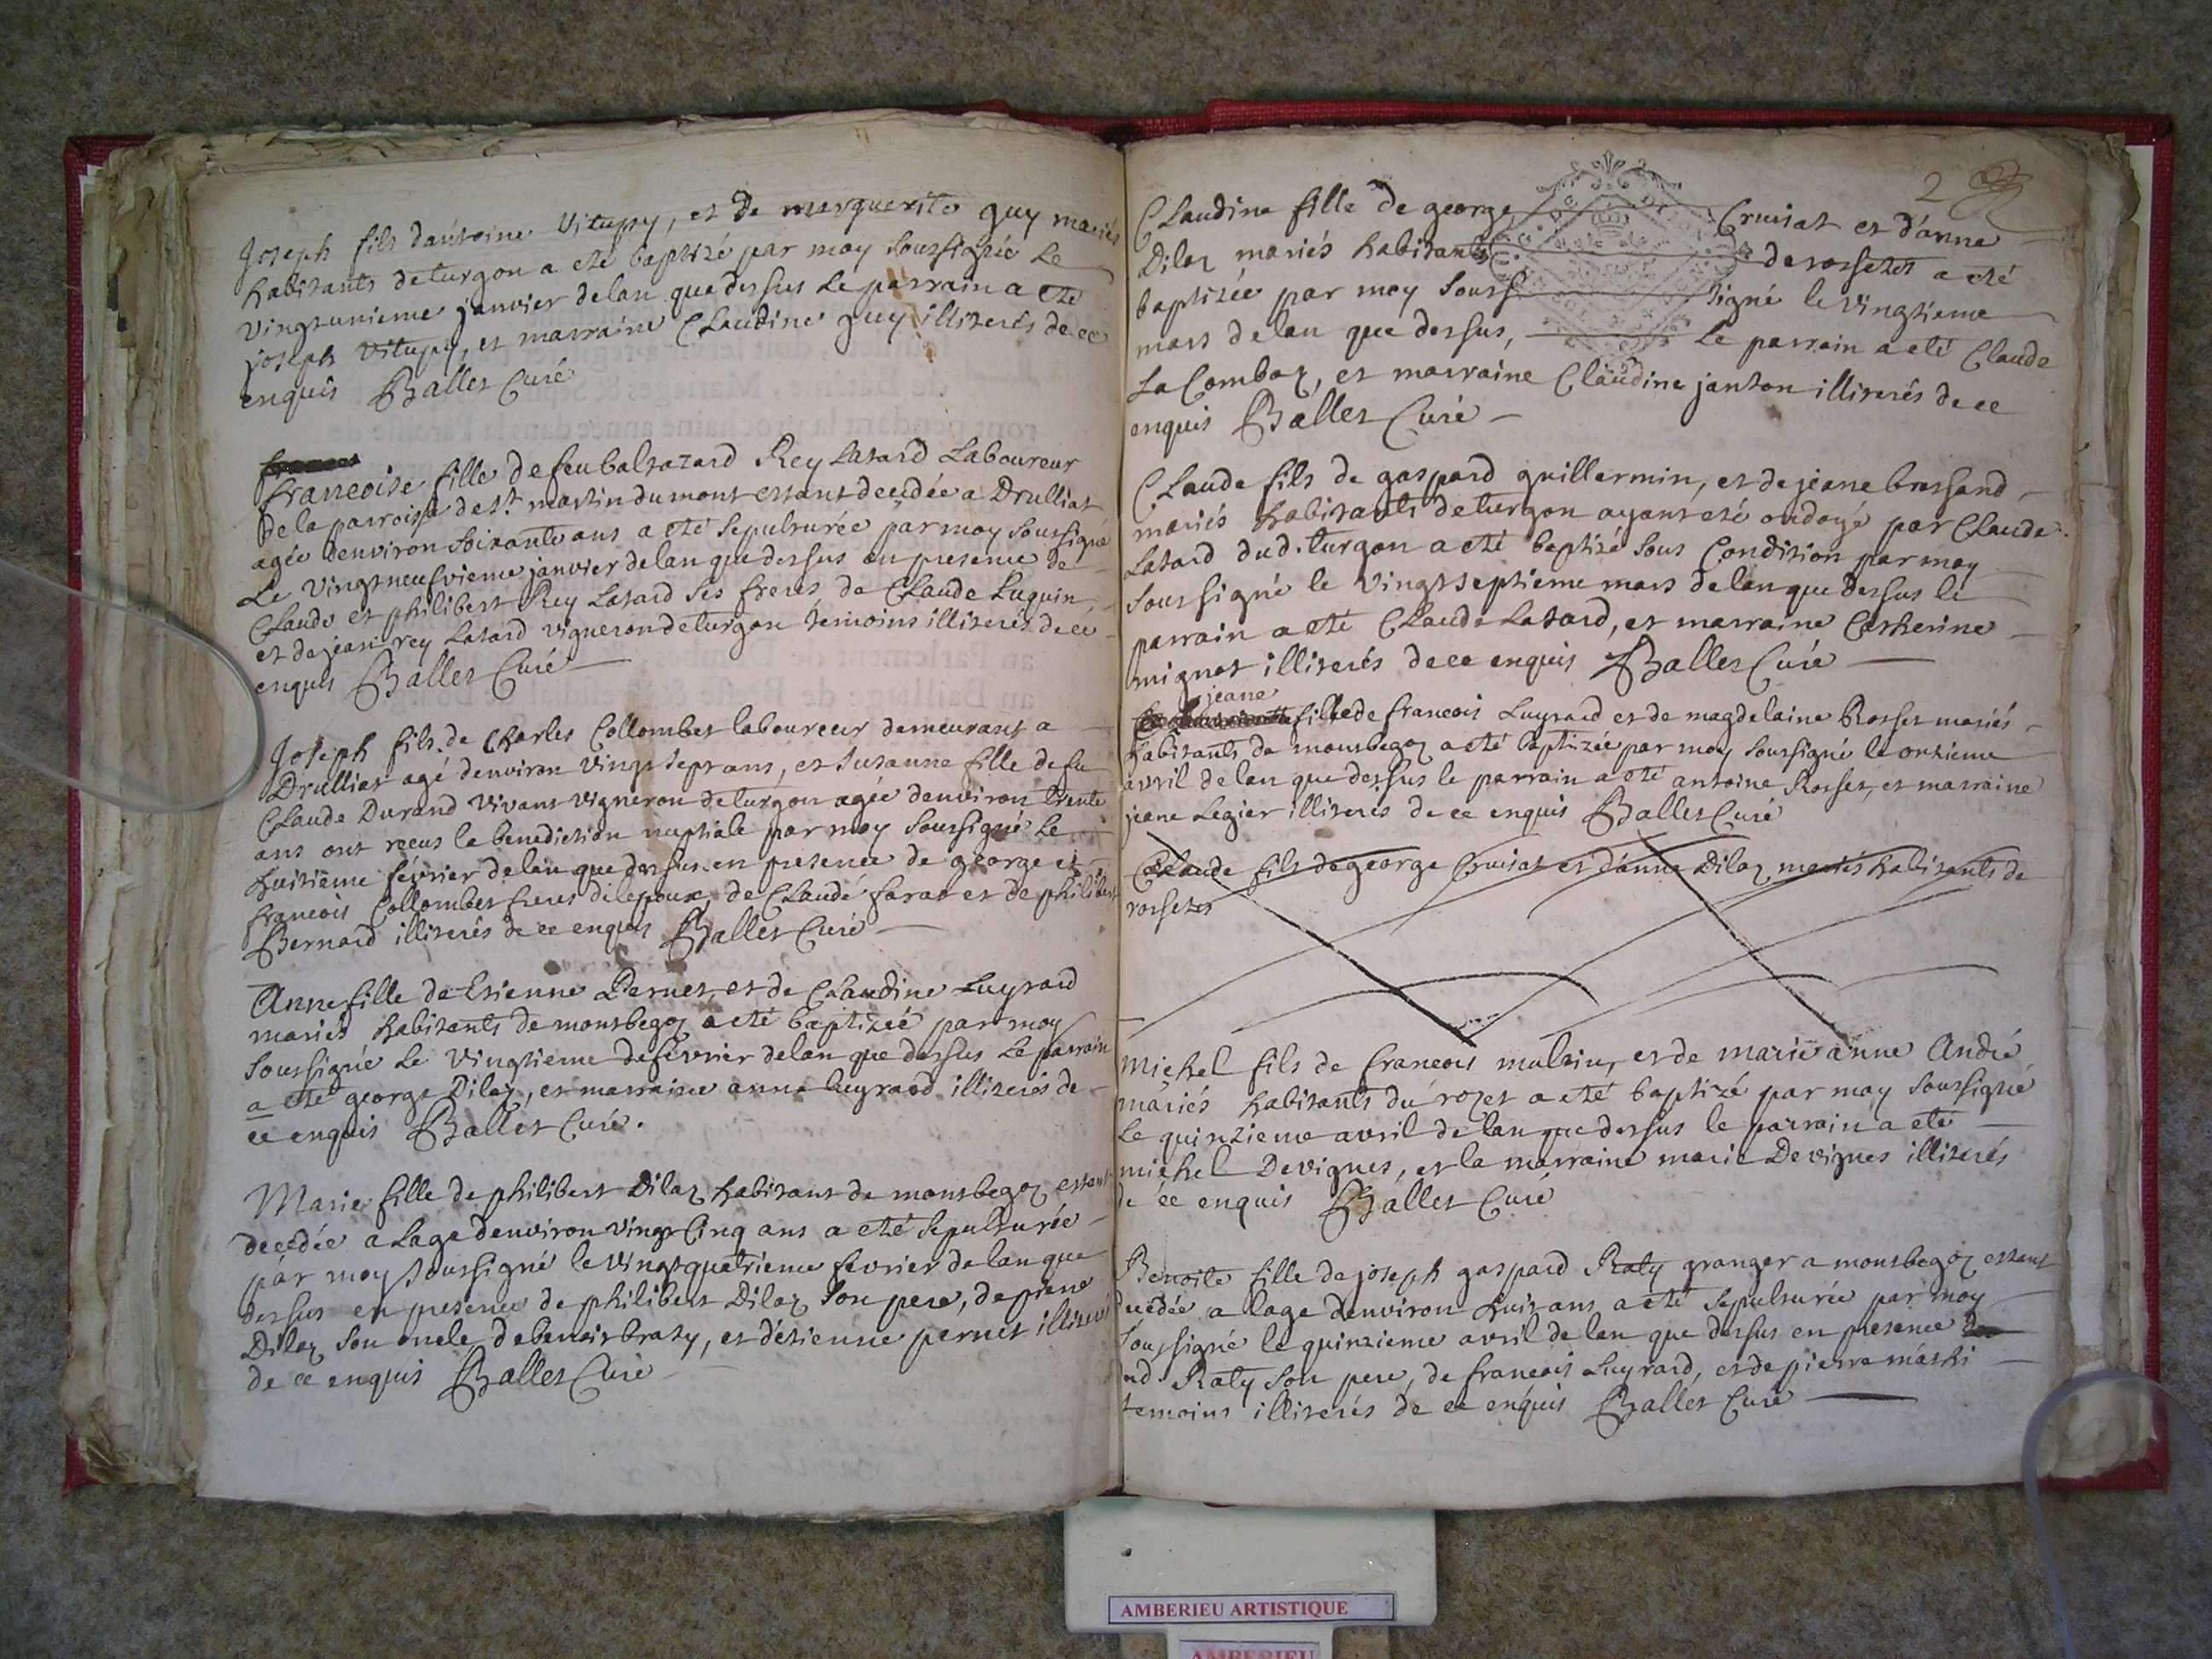 Joseph fils dantoine Vitupy, et de marguerite guy mariés
habitants deturgon a eté baptizé par moy soussigné Le
vingtunieme janvier delan que dessus Le parrain a eté
joseph Vitupy, et marraine Claudine guy illiterés de ce
enquis Ballet Curé
francoise fille defeu baltazard Rey Latard Laboureur
dela parroisse de st. martin du mont estant decedée a Drulliat
agée denviron soixante ans a eté sepulturée par moy soussigné
Le Vingtneufvieme janvier delan que dessus en presence de
Claude et philibert Rey Latard ses freres de Claude Luquin,
et de jean rey Latard vigneron deturgon temoins illiterés de ce
enquis Ballet Curé
Joseph fils de Charles Collombet laboureur demeurant a
Drulliat agé denviron vingt sept ans, et Susanne fille defu
Claude Durand vivant vigneron deturgon agée denviron trente
ans ont receus la benediction nuptiale par moy soussigné Le
huitième février delan que dessus en presence de george et
francois Collombet freres dilepoux, de Claude farat et de philibert
Bernard illiterés de ce enquis Ballet Curé
Anne fille de Etienne Pernet, et de Claudine Luyrard
mariés habitants de montbegoz a eté baptizée par moy
soussigné Le vingtieme defévrier delan que dessus Le parrain
a eté george Dilaz, et marraine anne Luyrard illiterés de
ce enquis Ballet Curé.
Marie fille de philibert Dilaz habitant de montbegoz estant
decedée a Lage denviron vingt Cinq ans a eté sepulturée
par moy soussigné le vingtquatrieme fevrier delan que
dessus en presence de philibert Dilaz son pere, de piere
Dilaz son oncle, debenoit braty, et d'etienne pernet illiterés
de ce enquis Ballet Curé
2
Claudine fille de george Cruisat et d'anne
Dilaz mariés habitants de rossetet a eté
baptizée par moy Souss signé le vingtieme
mars delan que dessus, Le parrain a eté Claude
La Combaz, et marraine Claudine janton illiterés de ce
enquis Ballet Curé
Claude fils de gaspard guillermin, et de jeane brassand
mariés habitants deturgon ayant eté ondoyé par Claude
Latard dud. turgon a eté baptizé sous Condition par moy
soussigné le vingtseptieme mars delan que dessus le
parrain a eté Claude Latard, et marraine Catherine
mignot illiterés de ce enquis Ballet Curé
jeane
fille de francois Luyrard et de magdelaine Rosset mariés
habitants de montbegoz a eté baptizée par moy soussigné le onzieme
avril delan que dessus le parrain a eté antoine Rosset, et marraine
jeane Legier illiterés de ce enquis Ballet Curé
Claude fils de george Cruisat et d'anne Dilaz mariés habitants de
rossetet
Michel fils de francois mulain, et de marie anne André
mariés habitants du rozet a eté baptizé par moy soussigné
Le quinzieme avril delan que dessus le parrain a eté
michel Devignes, et la marraine marie Devignes illiterés
de ce enquis Ballet Curé
Benoite fille de joseph gaspard Raty granger a montbegoz estant
decedée a lage denviron huit ans a eté sepulturée par moy
soussigné le quinzieme avril de lan que dessus en presence du
ud. Raty son pere, de francois Luyrard, et de pierre mathi
temoins illiterés de ce enquis Ballet Curé
AMBERIEU ARTISTIQUE
AMBERIEU